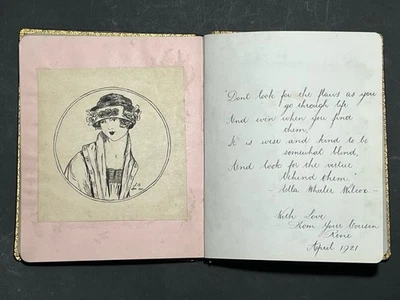 "Dont look for the flaws as you
go through life
And even when you find
them,
It is wise and kind to be
somewhat blind,
And look for the virtue
behind them."
Ella Wheeler Wilcox -
With Love
From Your Cousin
April 1921